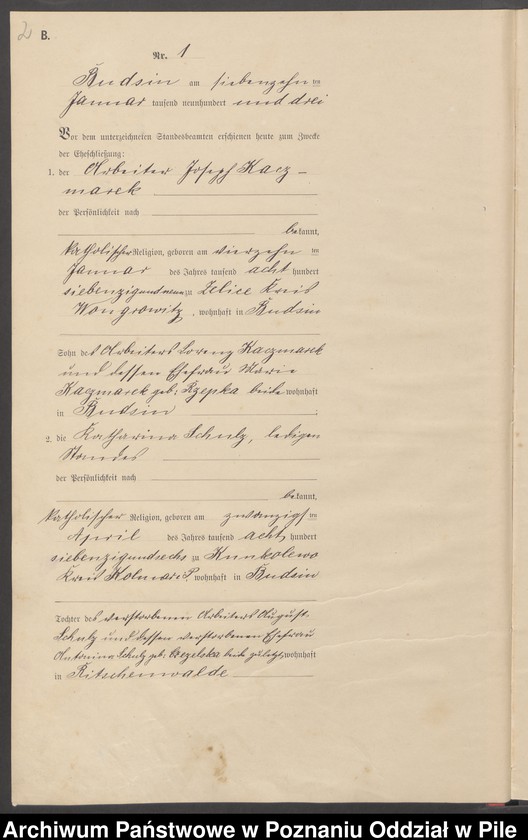 2 B.
Nr. 1
Budsin am siebenzehn ten
Januar tausend neunhundert und drei
Vor dem unterzeichneten Standesbeamten erschienen heute zum Zwecke
der Eheschließung:
1. der Arbeiter Joseph Kacz-
marek
der Persönlichkeit nach
bekannt,
katholischer Religion, geboren am vierzehn ten
Januar des Jahres tausend acht hundert
siebenzigundneun zu Zelice Kreis
Wongrowitz, wohnhaft in Budsin
Sohn des Arbeiters Lorenz Kaczmarek
und dessen Ehefrau Marie
Kaczmarek geb: Rzepka beide wohnhaft
in Budsin
2. die Katharina Schulz, ledigen
Standes
der Persönlichkeit nach
bekannt,
katholischer Religion, geboren am zwanzigsten
April des Jahres tausend acht hundert
siebenzigundsechs zu Kunkolewo
Kreis Kolmar i P. wohnhaft in Budsin
Tochter des verstorbenen Arbeiters August
Schulz und dessen verstorbenen Ehefrau
Antonina Schulz geb: beide zuletzt wohnhaft
in Ritschenwalde
Archiwum Państwowe w Poznaniu Oddział w Pile